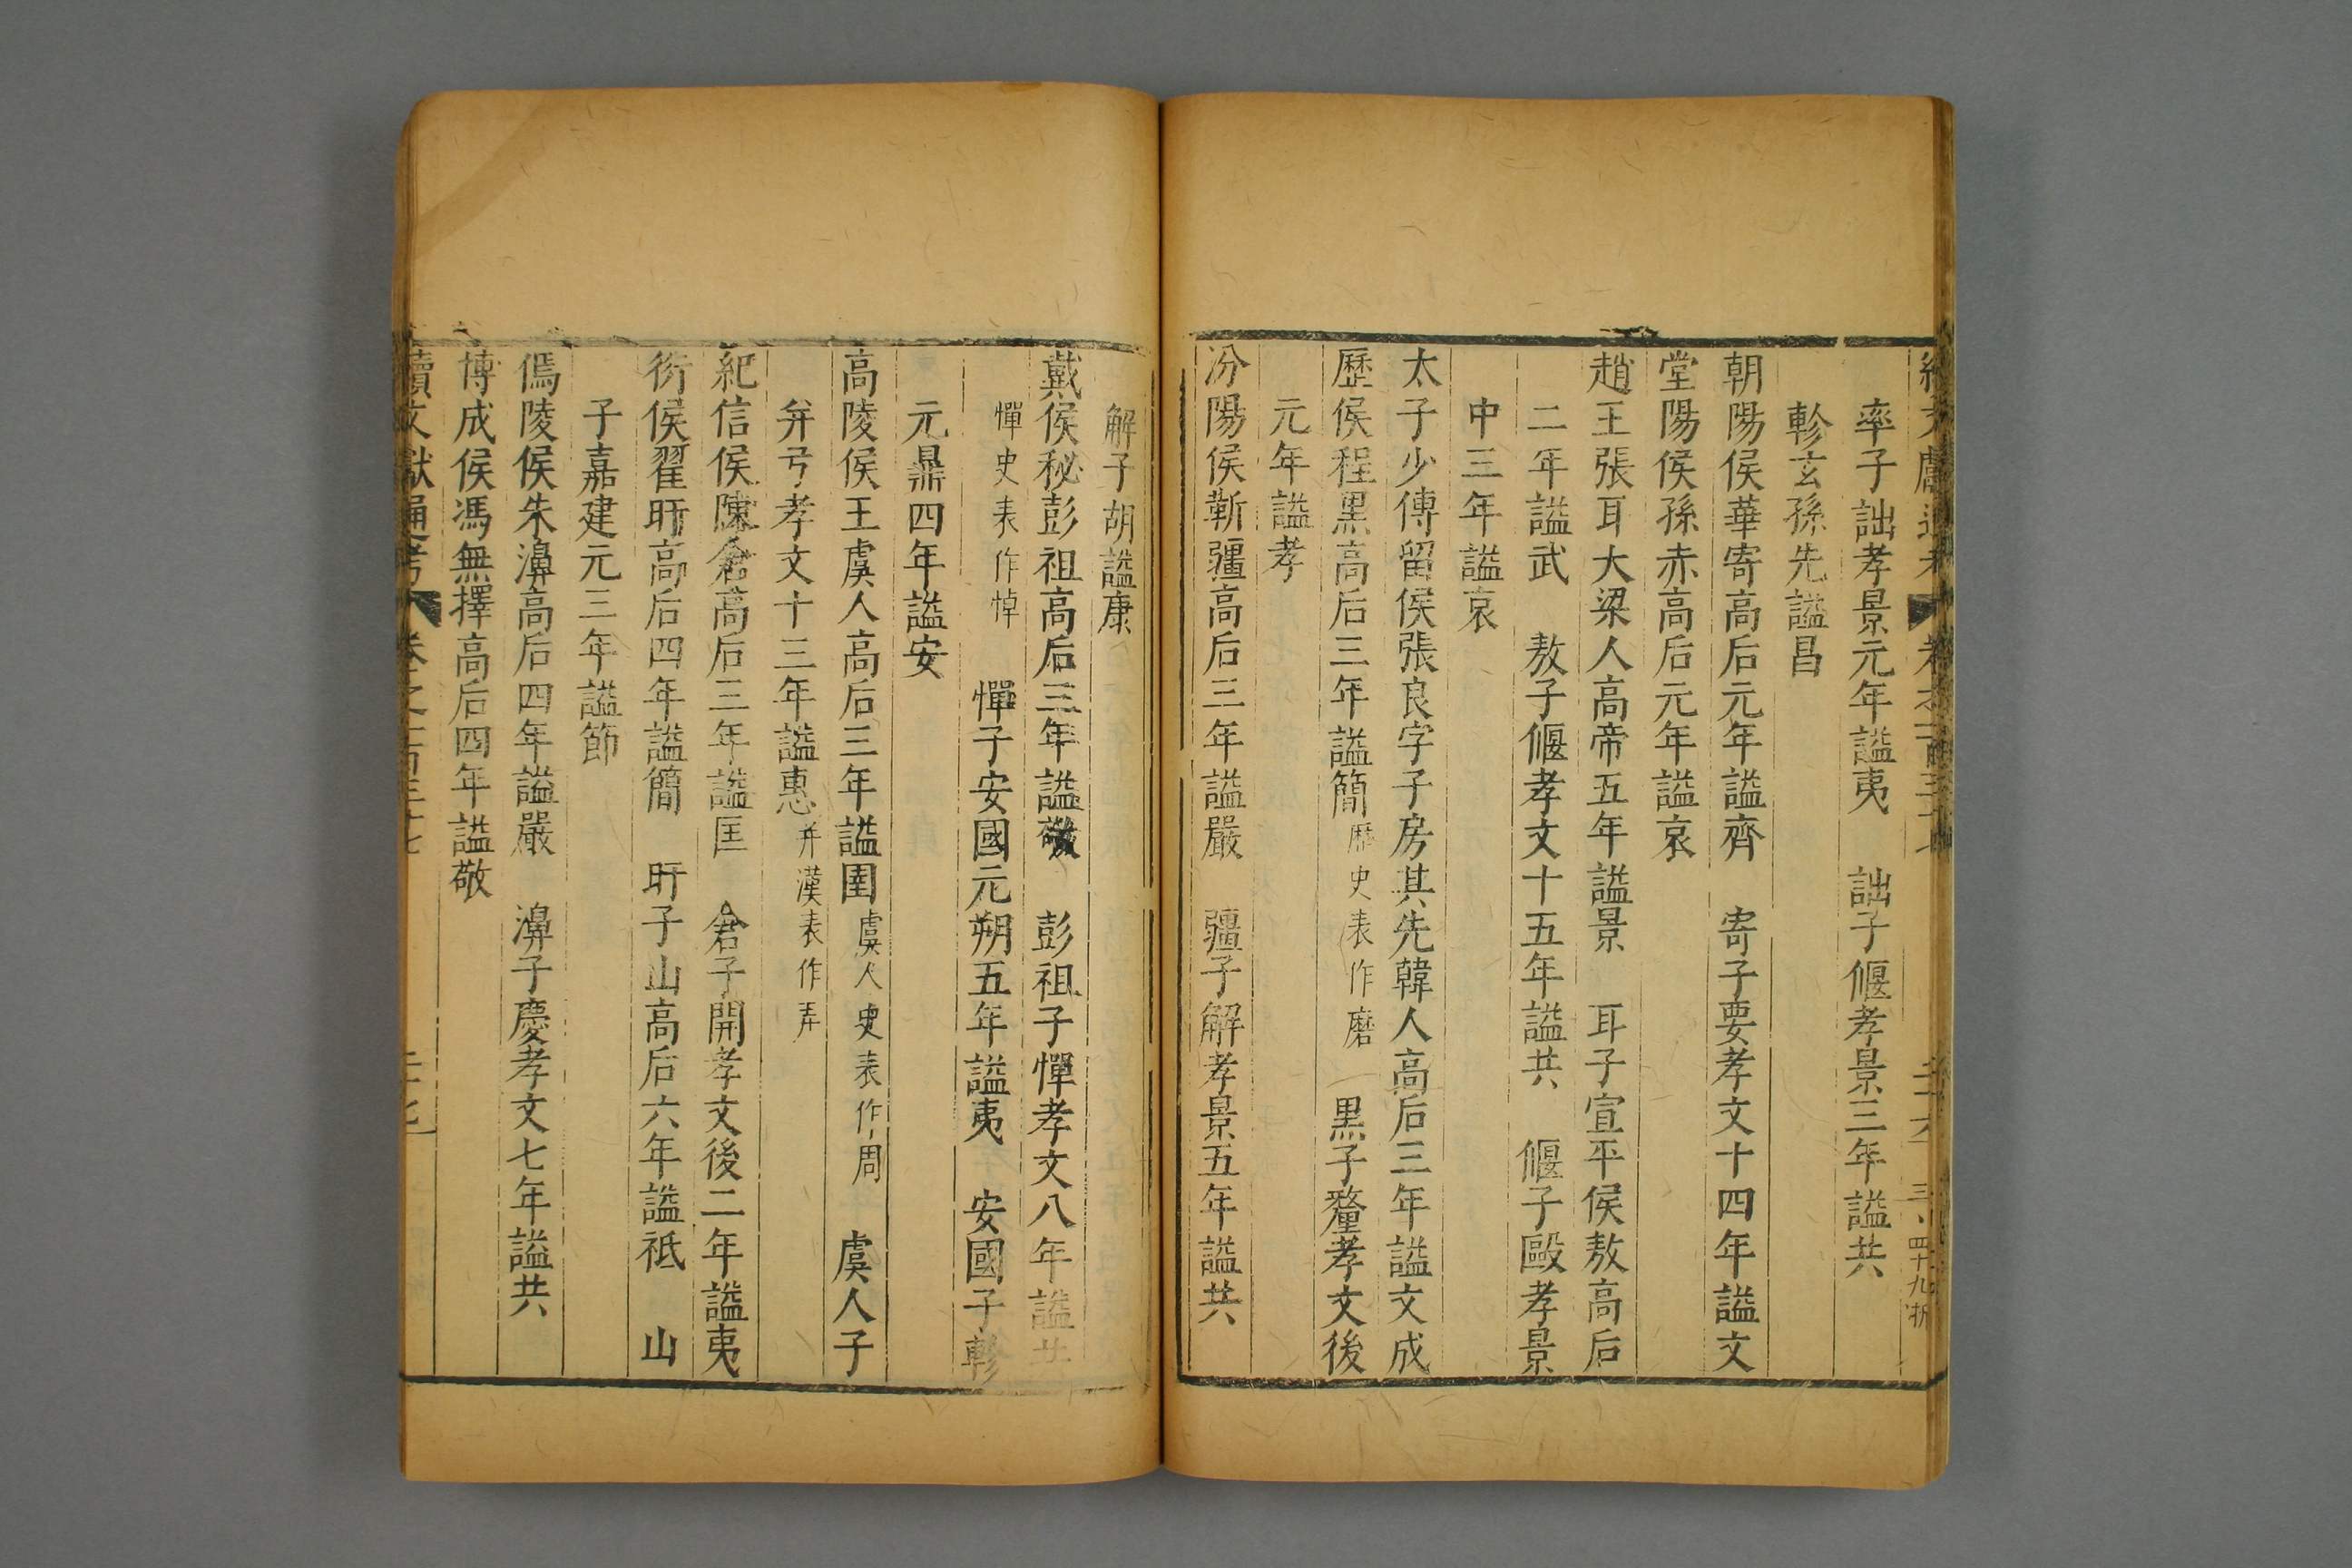 率子詘孝景元年謚夷　詘子偃孝景三年謚共
軫玄孫先謚昌
朝陽侯華寄高后元年謚齊　寄子要孝文十四年謚文
堂陽侯孫赤高后元年謚哀
趙王張耳大梁人高帝五年謚景　耳子宣平侯敖高后
二年謚武　敖子偃孝文十五年謚共　偃子毆孝景
中三年謚哀
太子少傅留侯張良字子房其先韓人高后三年謚文成
歷侯程黑高后三年謚簡歷史表作磨　黑子釐孝文後
元年謚孝
汾陽侯靳疆高后三年謚嚴　疆子解孝景五年謚共
解子胡謚康
戴侯秘彭祖高后三年謚敬　彭祖子憚孝文八年謚共
憚史表作悼　憚子安國元朔五年謚夷　安國子軫
元鼎四年謚安
高陵侯王虞人高后三年謚圉虞人史表作周　虞人子
弁弓孝文十三年謚惠弁漢表作弄
紀信侯陳倉高后三年謚匡　倉子開孝文後二年謚夷
衍侯翟盱高后四年謚簡　盱子山高后六年謚祗　山
子嘉建元三年謚節
傿陵侯朱濞高后四年謚嚴　濞子慶孝文七年謚共
博成侯馮無擇高后四年謚敬
續文獻通考　卷之一百三十七　二十七